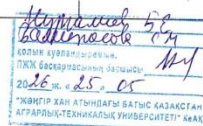 Нурғалиев Б.Е.
қолын куәландырамын,
ПЖЖ басқармасының бастығы
2026 ж. «25» 05
"ЖӘҢГІР ХАН АТЫНДАҒЫ БАТЫС ҚАЗАҚСТАН
АГРАРЛЫҚ-ТЕХНИКАЛЫҚ УНИВЕРСИТЕТІ" КеАҚ